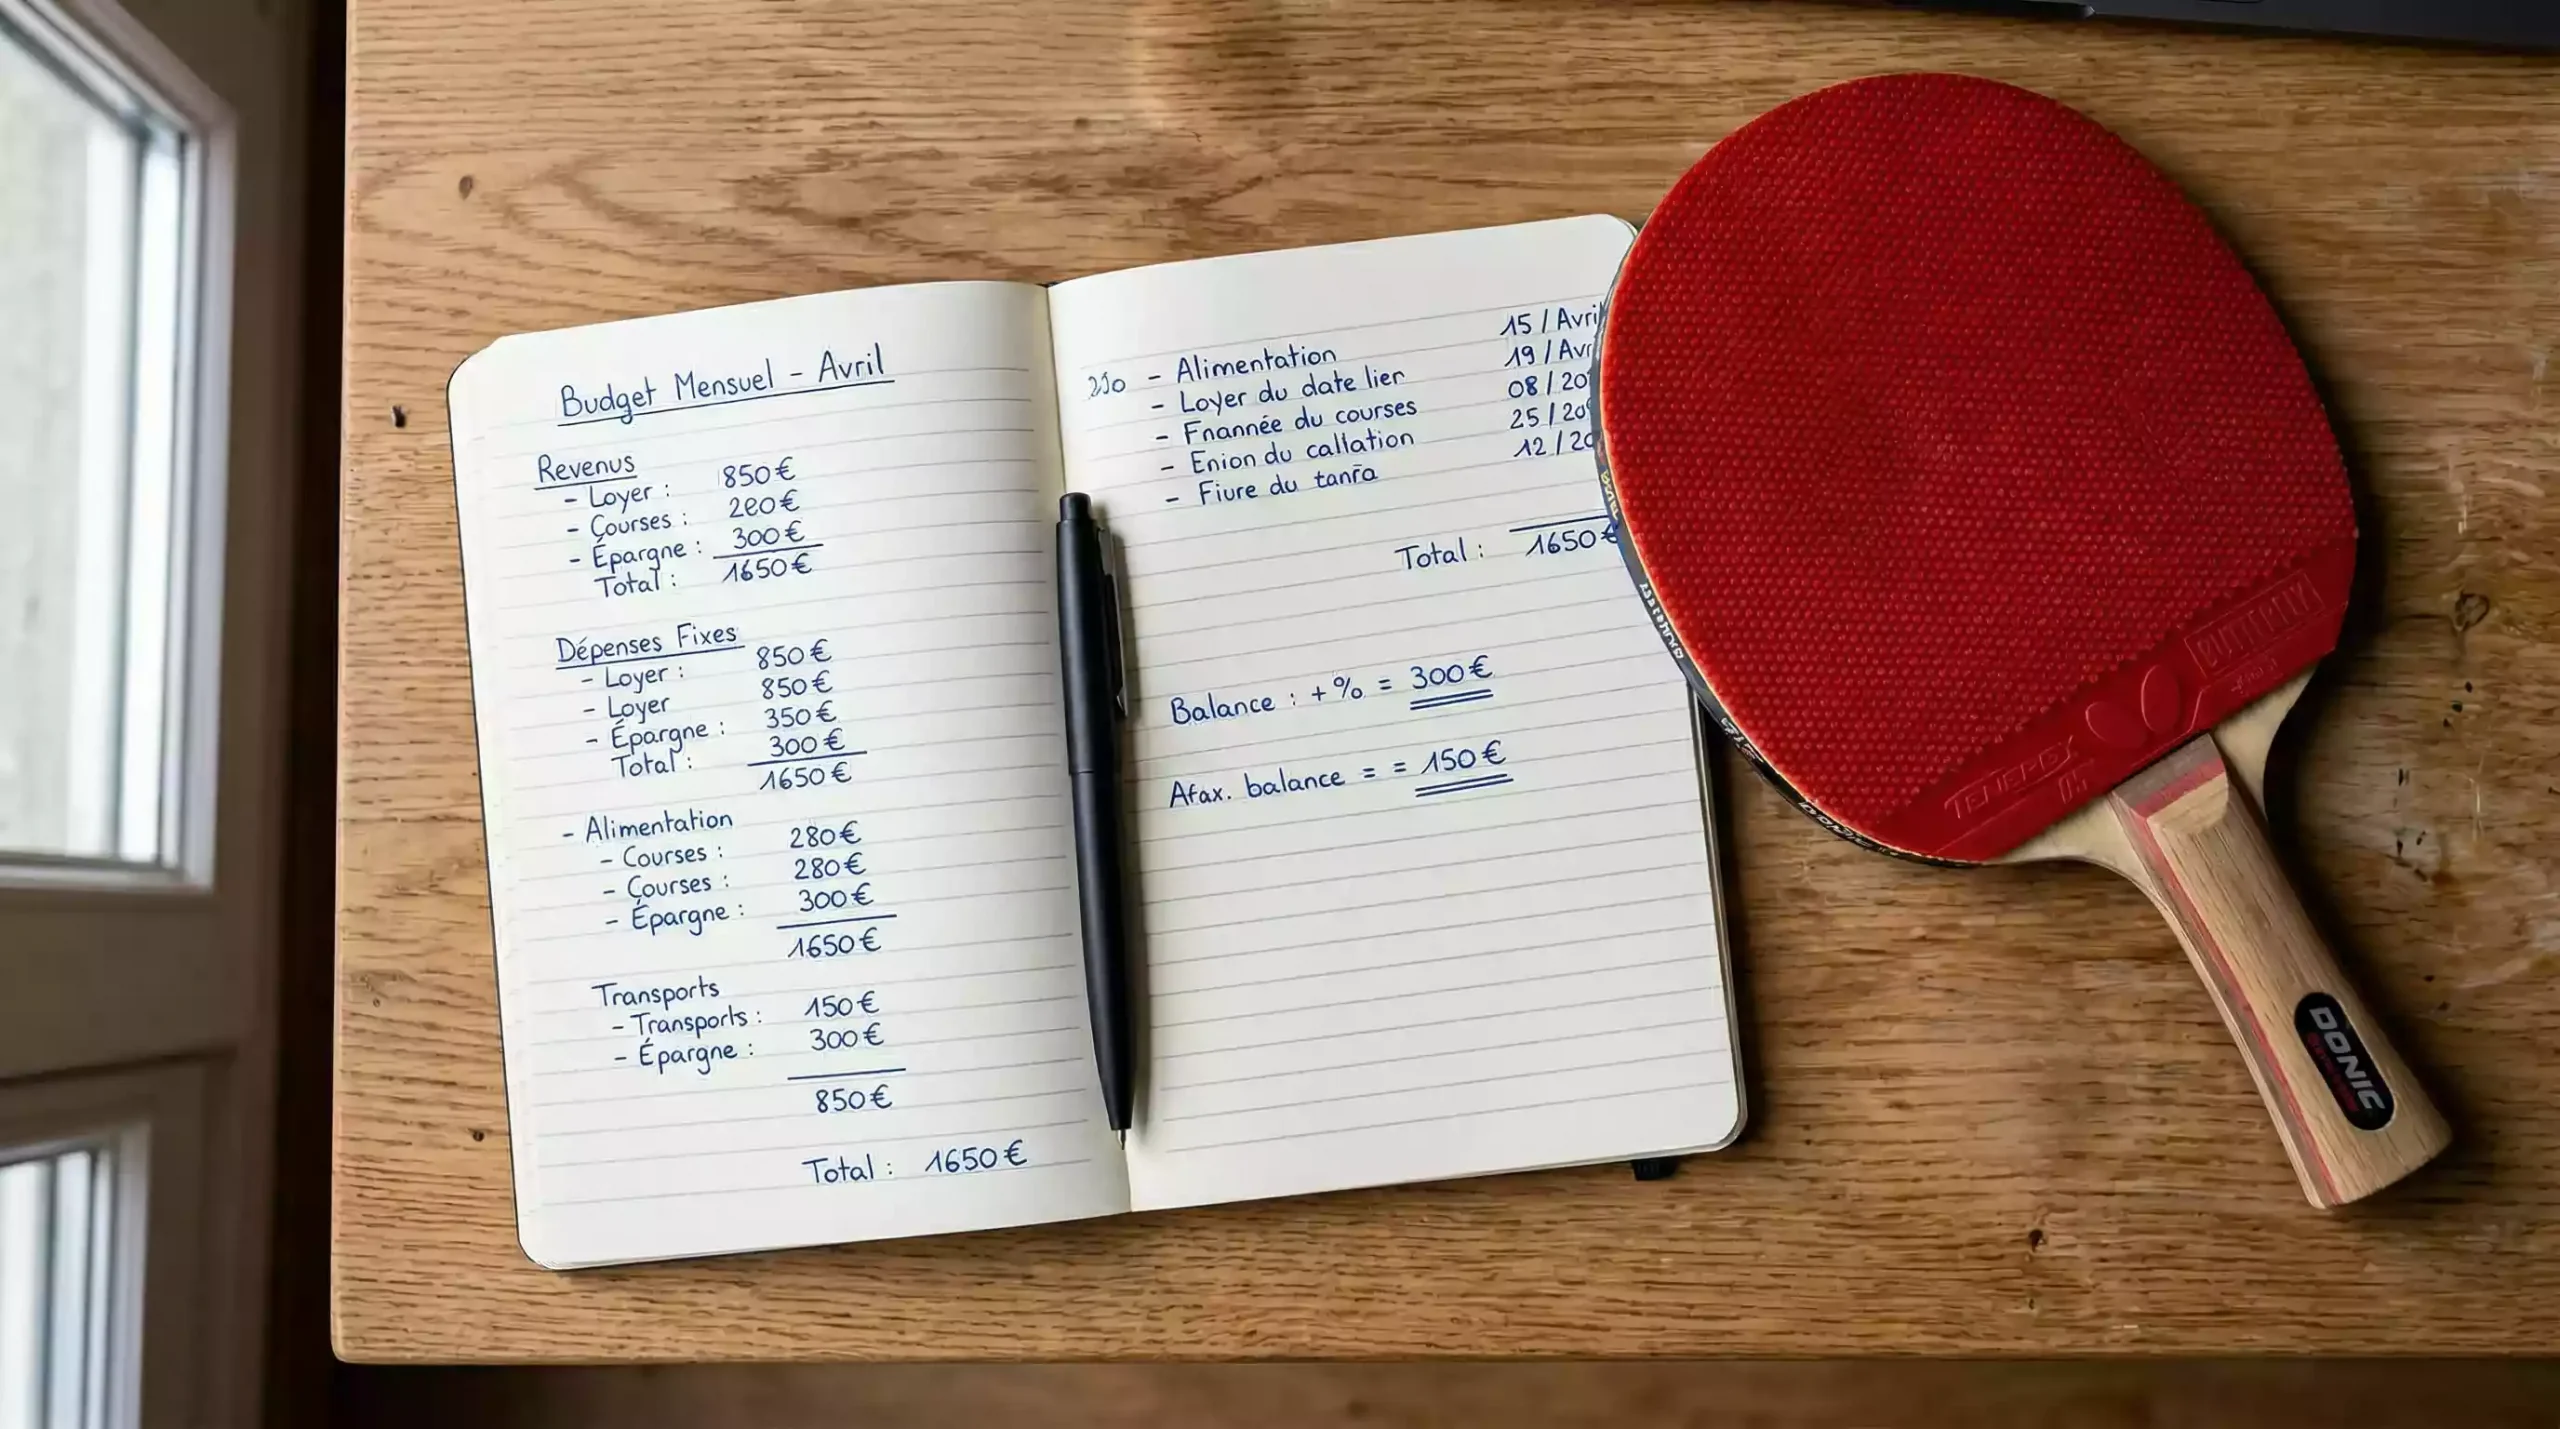 Budget Mensuel - Avril
Revenus
- Loyer : 850€
- Courses : 280€
- Épargne : 300€
Total : 1650€
Dépenses Fixes
- Loyer : 850€
- Loyer 850€
- Épargne : 350€
Total : 300€
1650€
- Alimentation
- Courses : 280€
- Courses : 280€
- Épargne : 300€
1650€
Transports
- Transports : 150€
- Épargne : 300€
850€
Total : 1650€
15 / Avril
- Alimentation 19 / Avr
- Loyer du date lier 08 / 20
- Fnannée du courses 25 / 20
- Enion du callation 12 / 20
- Fiure du
Total : 1650€
Balance : +% = 300€
Afax. balance = = 150€
BUTTERFLY
TENERGY
DONIC